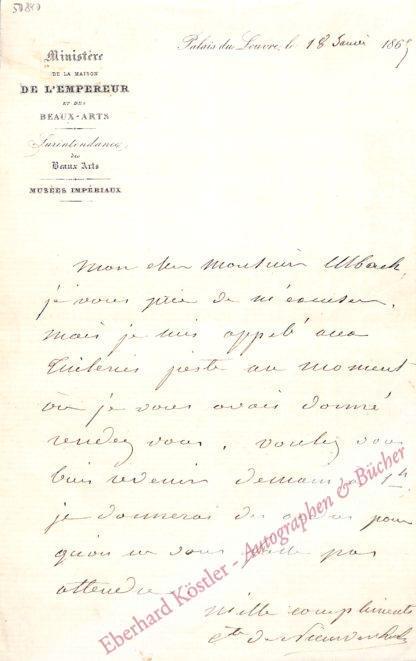 50840
Palais du Louvre, le 18 Janvier 1869
Ministère
DE LA MAISON
DE L'EMPEREUR
ET DES
BEAUX-ARTS
Surintendance
des
Beaux Arts
MUSÉES IMPÉRIAUX
Mon cher Monsieur Ulbach,
je vous prie de m'excuser,
mais je suis appelé aux
Tuileries juste au moment
où je vous avais donné
rendez vous. voulez vous
bien revenir demain 1h
je donnerai des ordres pour
qu'on ne vous fasse pas
attendre
mille compliments
Cte de Nieuwerkerke
Eberhard Köstler - Autographen & Bücher